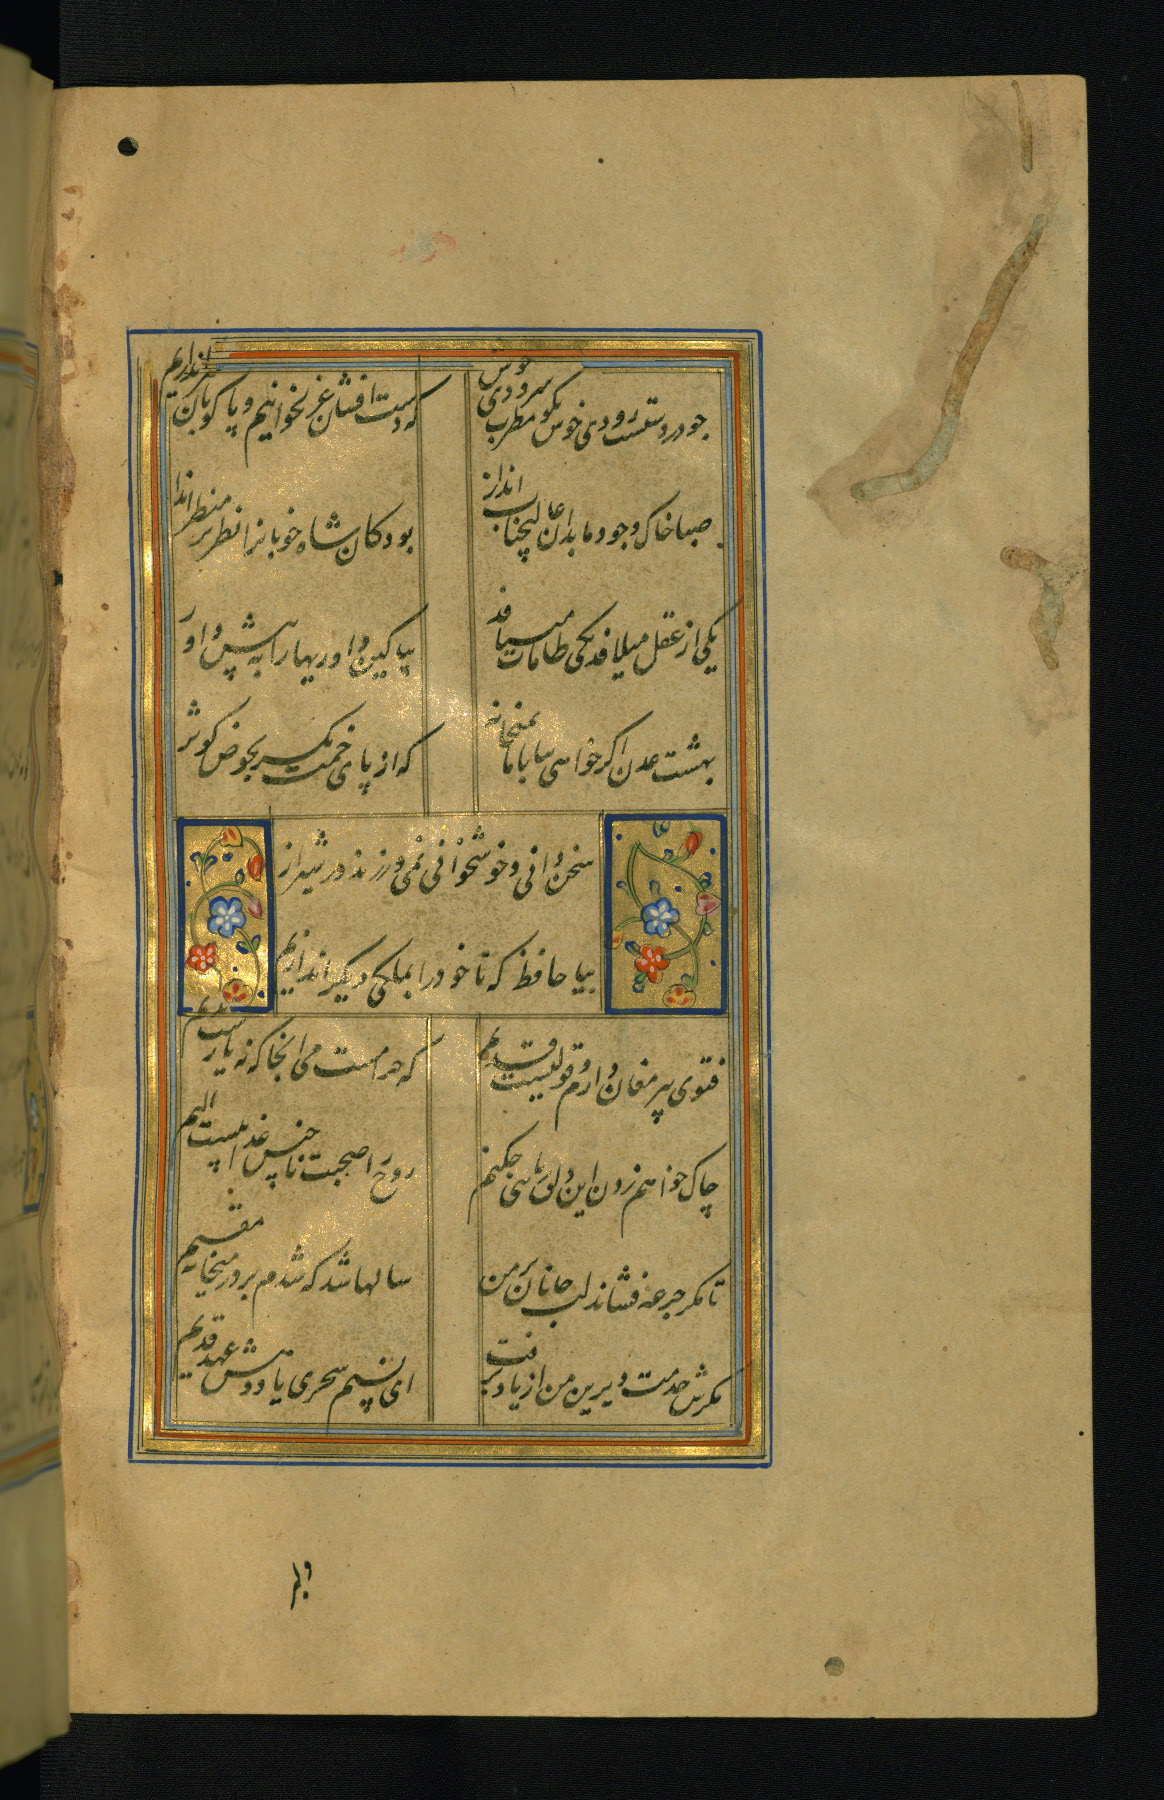 چو در دستست رودی خوش بگو مطرب سرودی خوش
که دست افشان غزل خوانیم و پا کوبان سر اندازیم
صبا خاک وجود ما بدان عالیجناب انداز
بود کان شاه خوبانرا نظر بر منظر اندازیم
یکی از عقل میلافد یکی طامات میبافد
بیا کین داوریها را به پیش داور اندازیم
بهشت عدن اگر خواهی بیا با ما بمیخانه
که از پای خمت یکسر بحوض کوثر اندازیم
سخن دانی و خوشخوانی نمی ورزند در شیراز
بیا حافظ که تا خود را بملکی دیگر اندازیم
فتوی پیر مغان دارم و قولیست قدیم
که حرامست می آنجا که نه یارست ندیم
چاک خواهم زدن این دلق ریایی چکنم
روح را صحبت ناجنس عذابیست الیم
تا مگر جرعه فشاند لب جانان بر من
سالها شد که شدم بر در میخانه مقیم
مگرش خدمت دیرین من از یاد برفت
ای نسیم سحری یاد دهش عهد قدیم